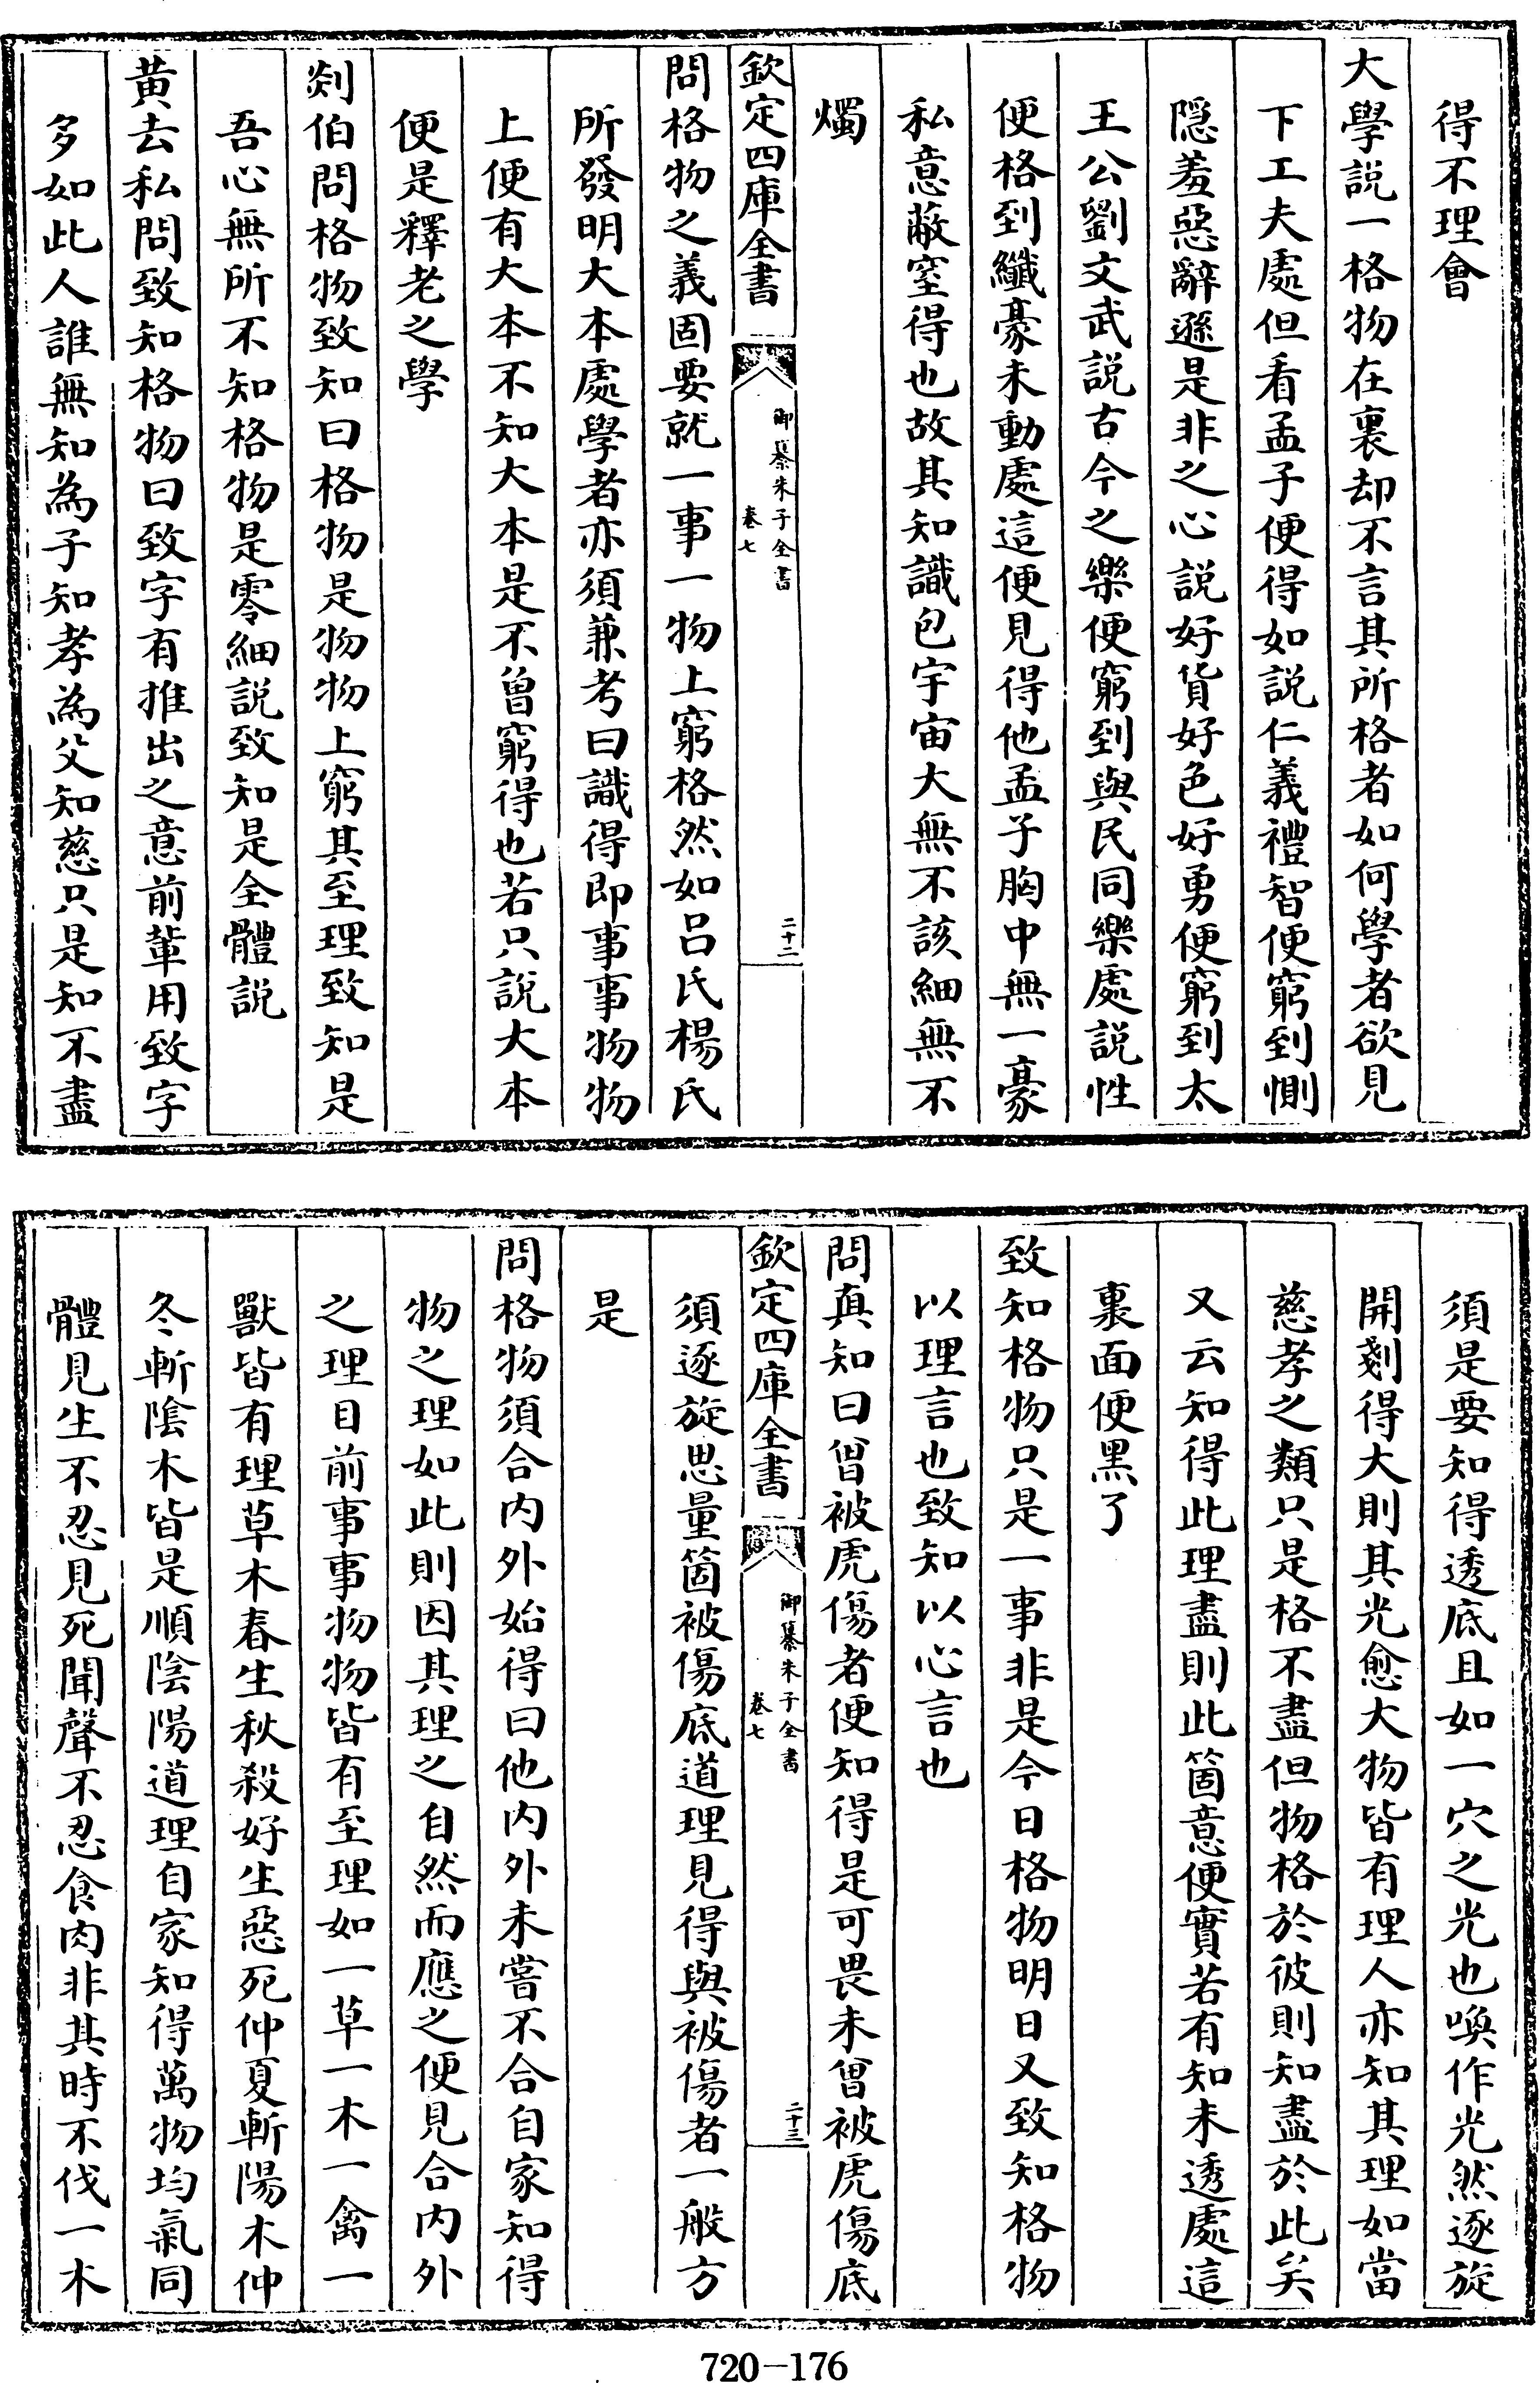 得不理會
大學說一格物在裏却不言其所格者如何學者欲見
下工夫處但看孟子便得如說仁義禮智便窮到惻
隠羞惡辭遜是非之心說好貨好色好勇便窮到太
王公劉文武説古今之樂便窮到與民同樂處說性
便格到纖豪未動處這便見得他孟子胸中無一豪
私意蔽窒得也故其知識包宇宙大無不該細無不
燭
欽定四庫全書
御纂朱子全書
卷七
二十二
問格物之義固要就一事一物上窮格然如呂氏楊氏
所發明大本處學者亦須兼考曰識得即事事物物
上便有大本不知大本是不曾窮得也若只說大本
便是釋老之學
剡伯問格物致知曰格物是物物上窮其至理致知是
吾心無所不知格物是零細說致知是全體説
黄去私問致知格物曰致字有推出之意前輩用致字
多如此人誰無知為子知孝為父知慈只是知不盡
須是要知得透底且如一穴之光也喚作光然逐旋
開剗得大則其光愈大物皆有理人亦知其理如當
慈孝之類只是格不盡但物格於彼則知盡於此矣
又云知得此理盡則此箇意便實若有知未透處這
裏面便黑了
致知格物只是一事非是今日格物明日又致知格物
以理言也致知以心言也
問真知曰曾被虎傷者便知得是可畏未曾被虎傷底
欽定四庫全書
御纂朱子全書
卷七
二十三
須逐旋思量箇被傷底道理見得與被傷者一般方
是
問格物須合内外始得曰他内外未嘗不合自家知得
物之理如此則因其理之自然而應之便見合内外
之理目前事事物物皆有至理如一草一木一禽一
獸皆有理草木春生秋殺好生惡死仲夏斬陽木仲
冬斬陰木皆是順陰陽道理自家知得萬物均氣同
體見生不忍見死聞聲不忍食肉非其時不伐一木
720-176